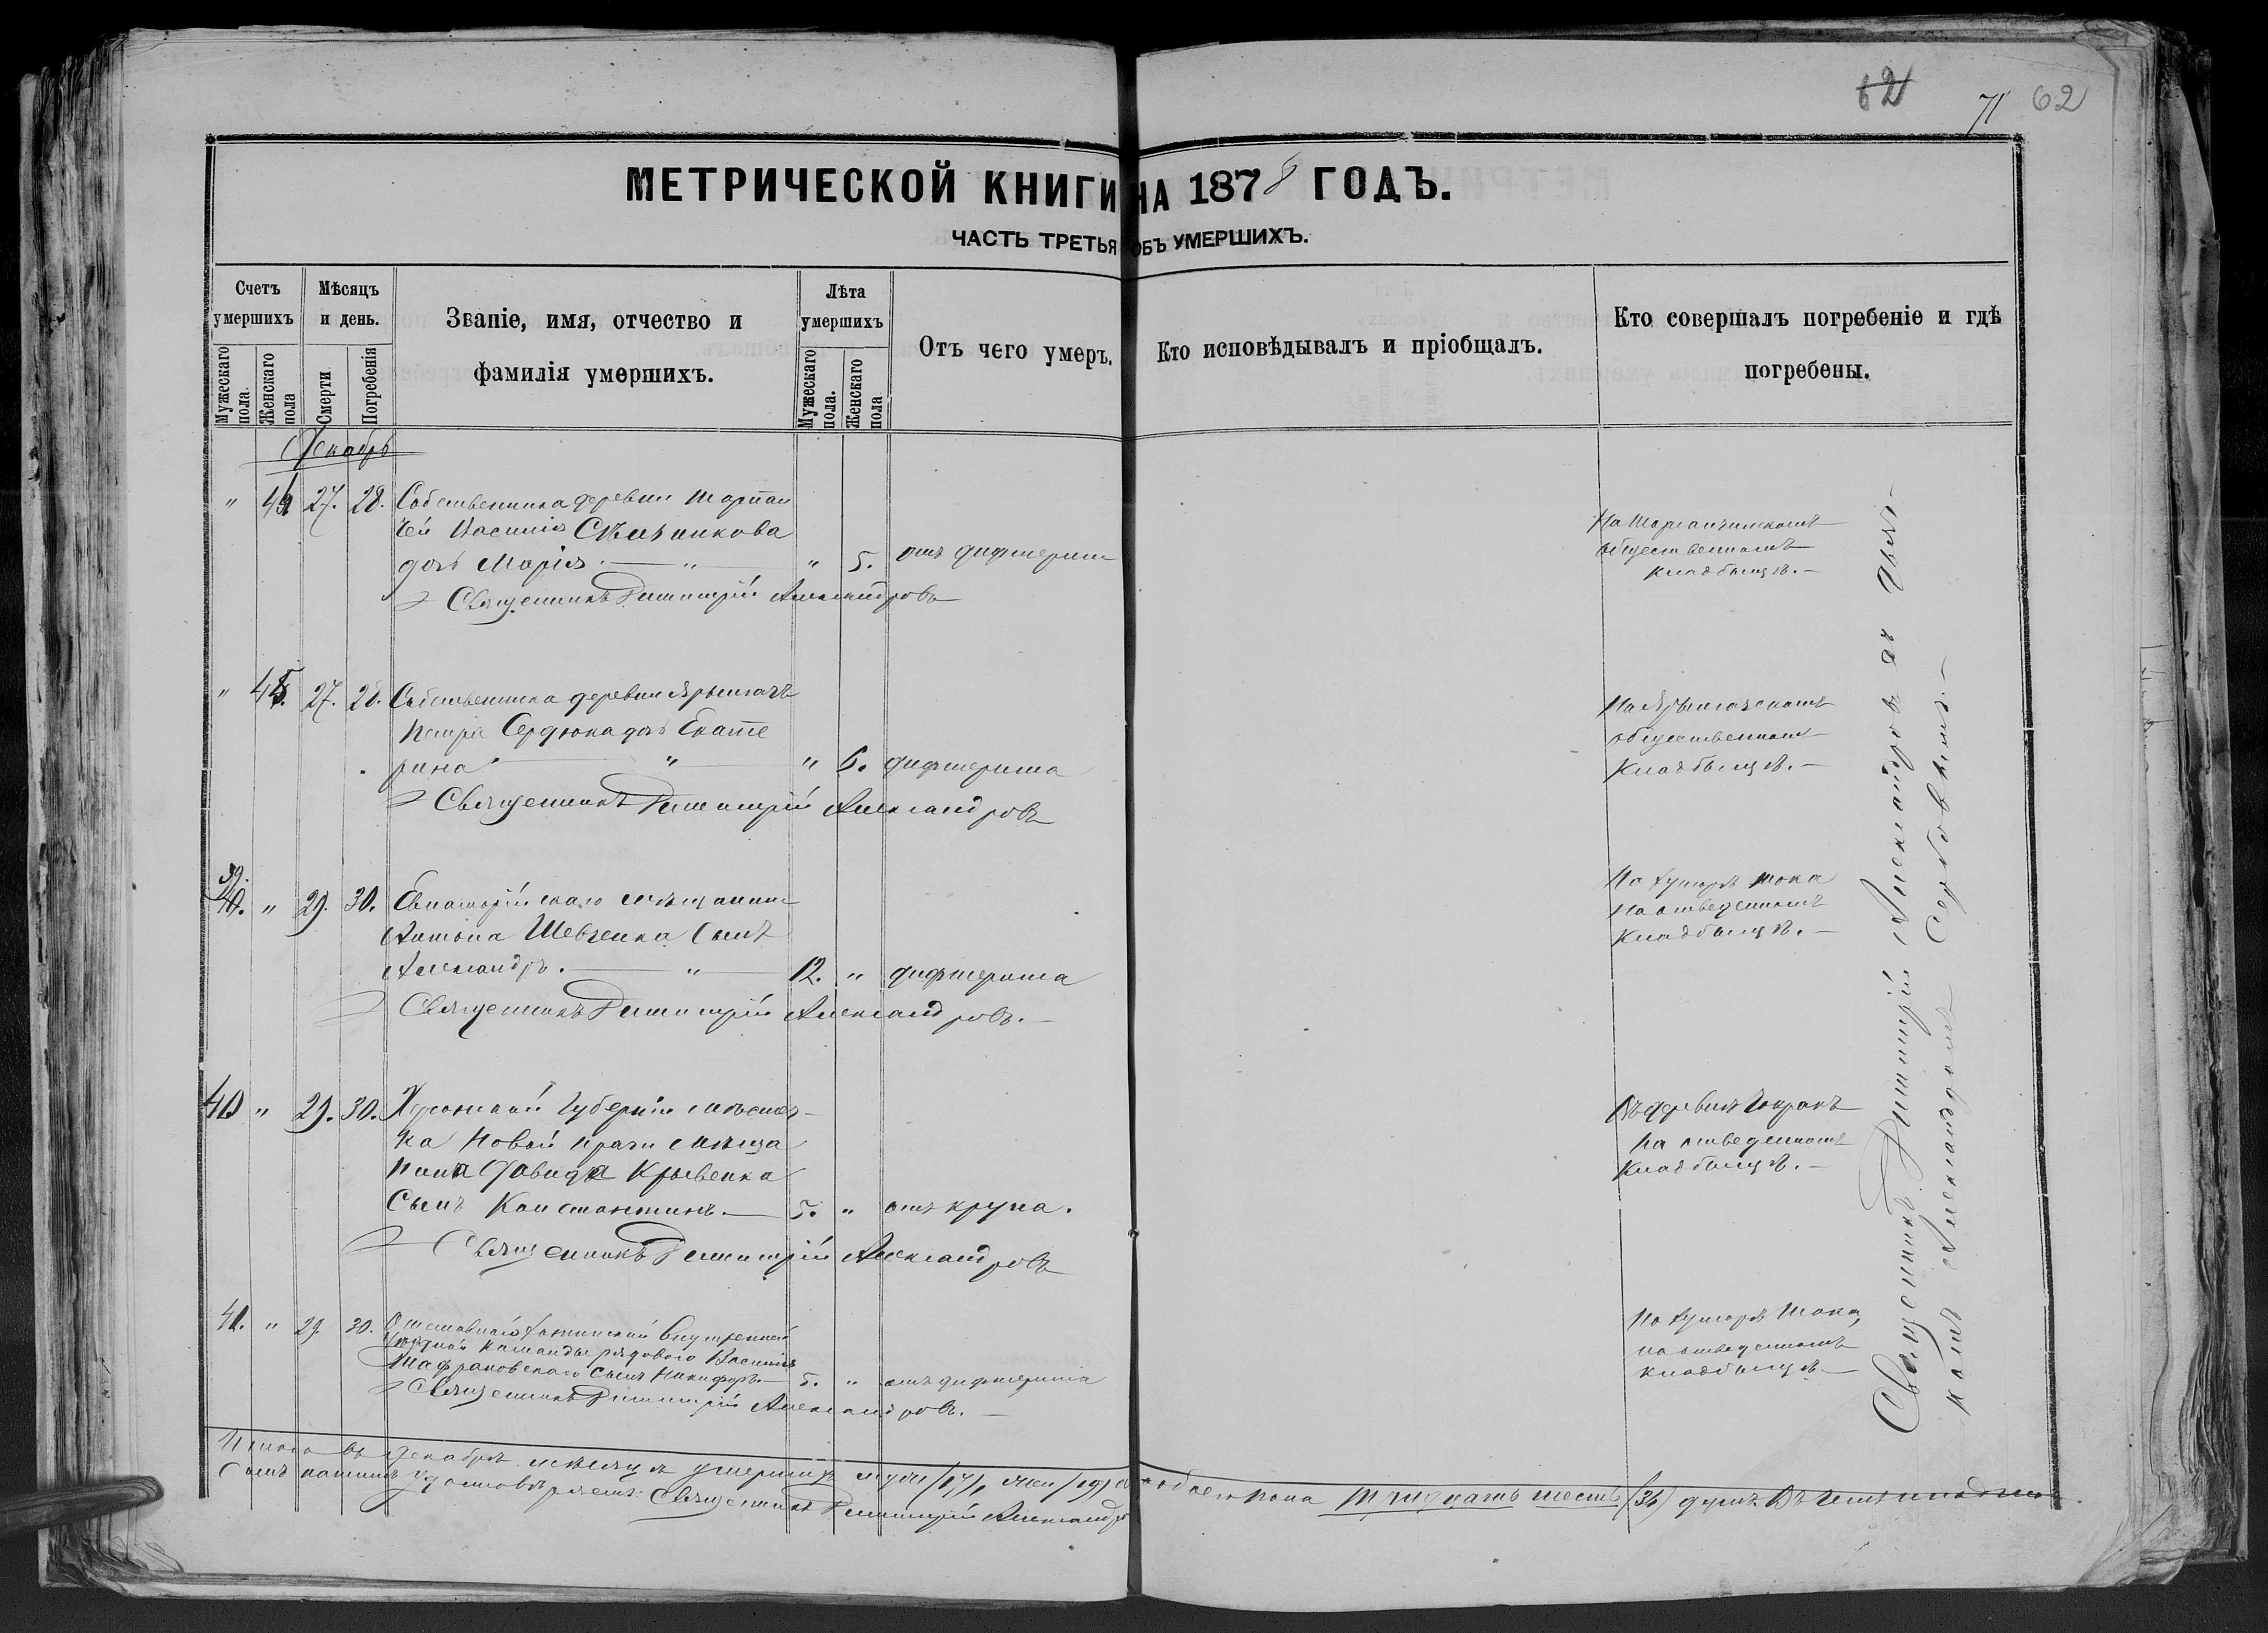 62
71 62
МЕТРИЧЕСКОЙ КНИГИ НА 1878 ГОДЪ.
ЧАСТЬ ТРЕТЬЯ ОБЪ УМЕРШИХЪ.
Счетъ умершихъ
Мужескаго пола.
Женскаго пола
Мѣсяцъ и день.
Смерти
Погребенія
Званіе, имя, отчество и фамилія умершихъ.
Лѣта умершихъ
Мужескаго пола.
Женскаго пола
Отъ чего умеръ.
Кто исповѣдывалъ и пріобщалъ.
Кто совершалъ погребеніе и гдѣ погребены.
Декабрь
" 44 27. 28. Собственника деревни
Василія
дочь Марія. " " 5. отъ дифтерита
На
общественномъ
кладбищѣ.
Священникъ Димитрій Александровъ
" 45. 27. 28. Собственника деревни Ярылгачъ
Петра Сердюка дочь Екате
рина " " 6. дифтерита
На Ярылгачскомъ
общественномъ
кладбищѣ.
Священникъ Димитрій Александровъ
39. " 29. 30. Евпаторійскаго мѣщанина
Антона Шевченка сынъ
Александръ. " 12. " дифтерита
На хуторѣ Тока
на отведенномъ
кладбищѣ.
Священникъ Димитрій Александровъ.
40 " 29. 30. Херсонской губерніи мѣстеч-
ка Новой Праги мѣща
нина Давида Крывенка
сынъ Константинъ. 5. " отъ крупа.
Въ деревнѣ
на отведенномъ
кладбищѣ.
Священникъ Димитрій Александровъ
41. " 29. 30. Отставнаго внутренней
команды рядового Василія
Шафрановскаго сынъ Никифоръ. 5. " отъ дифтерита
На хуторѣ Тока,
на отведенномъ
кладбищѣ
Священникъ Димитрій Александровъ.
Итого въ декабрѣ мѣсяцѣ умершихъ муж /17/, жен /19/ обоего пола тридцать шесть /36/ душъ. Въ чемъ
удостовѣряемъ: Священникъ Димитрій Александровъ
Священникъ Димитрій Александровъ